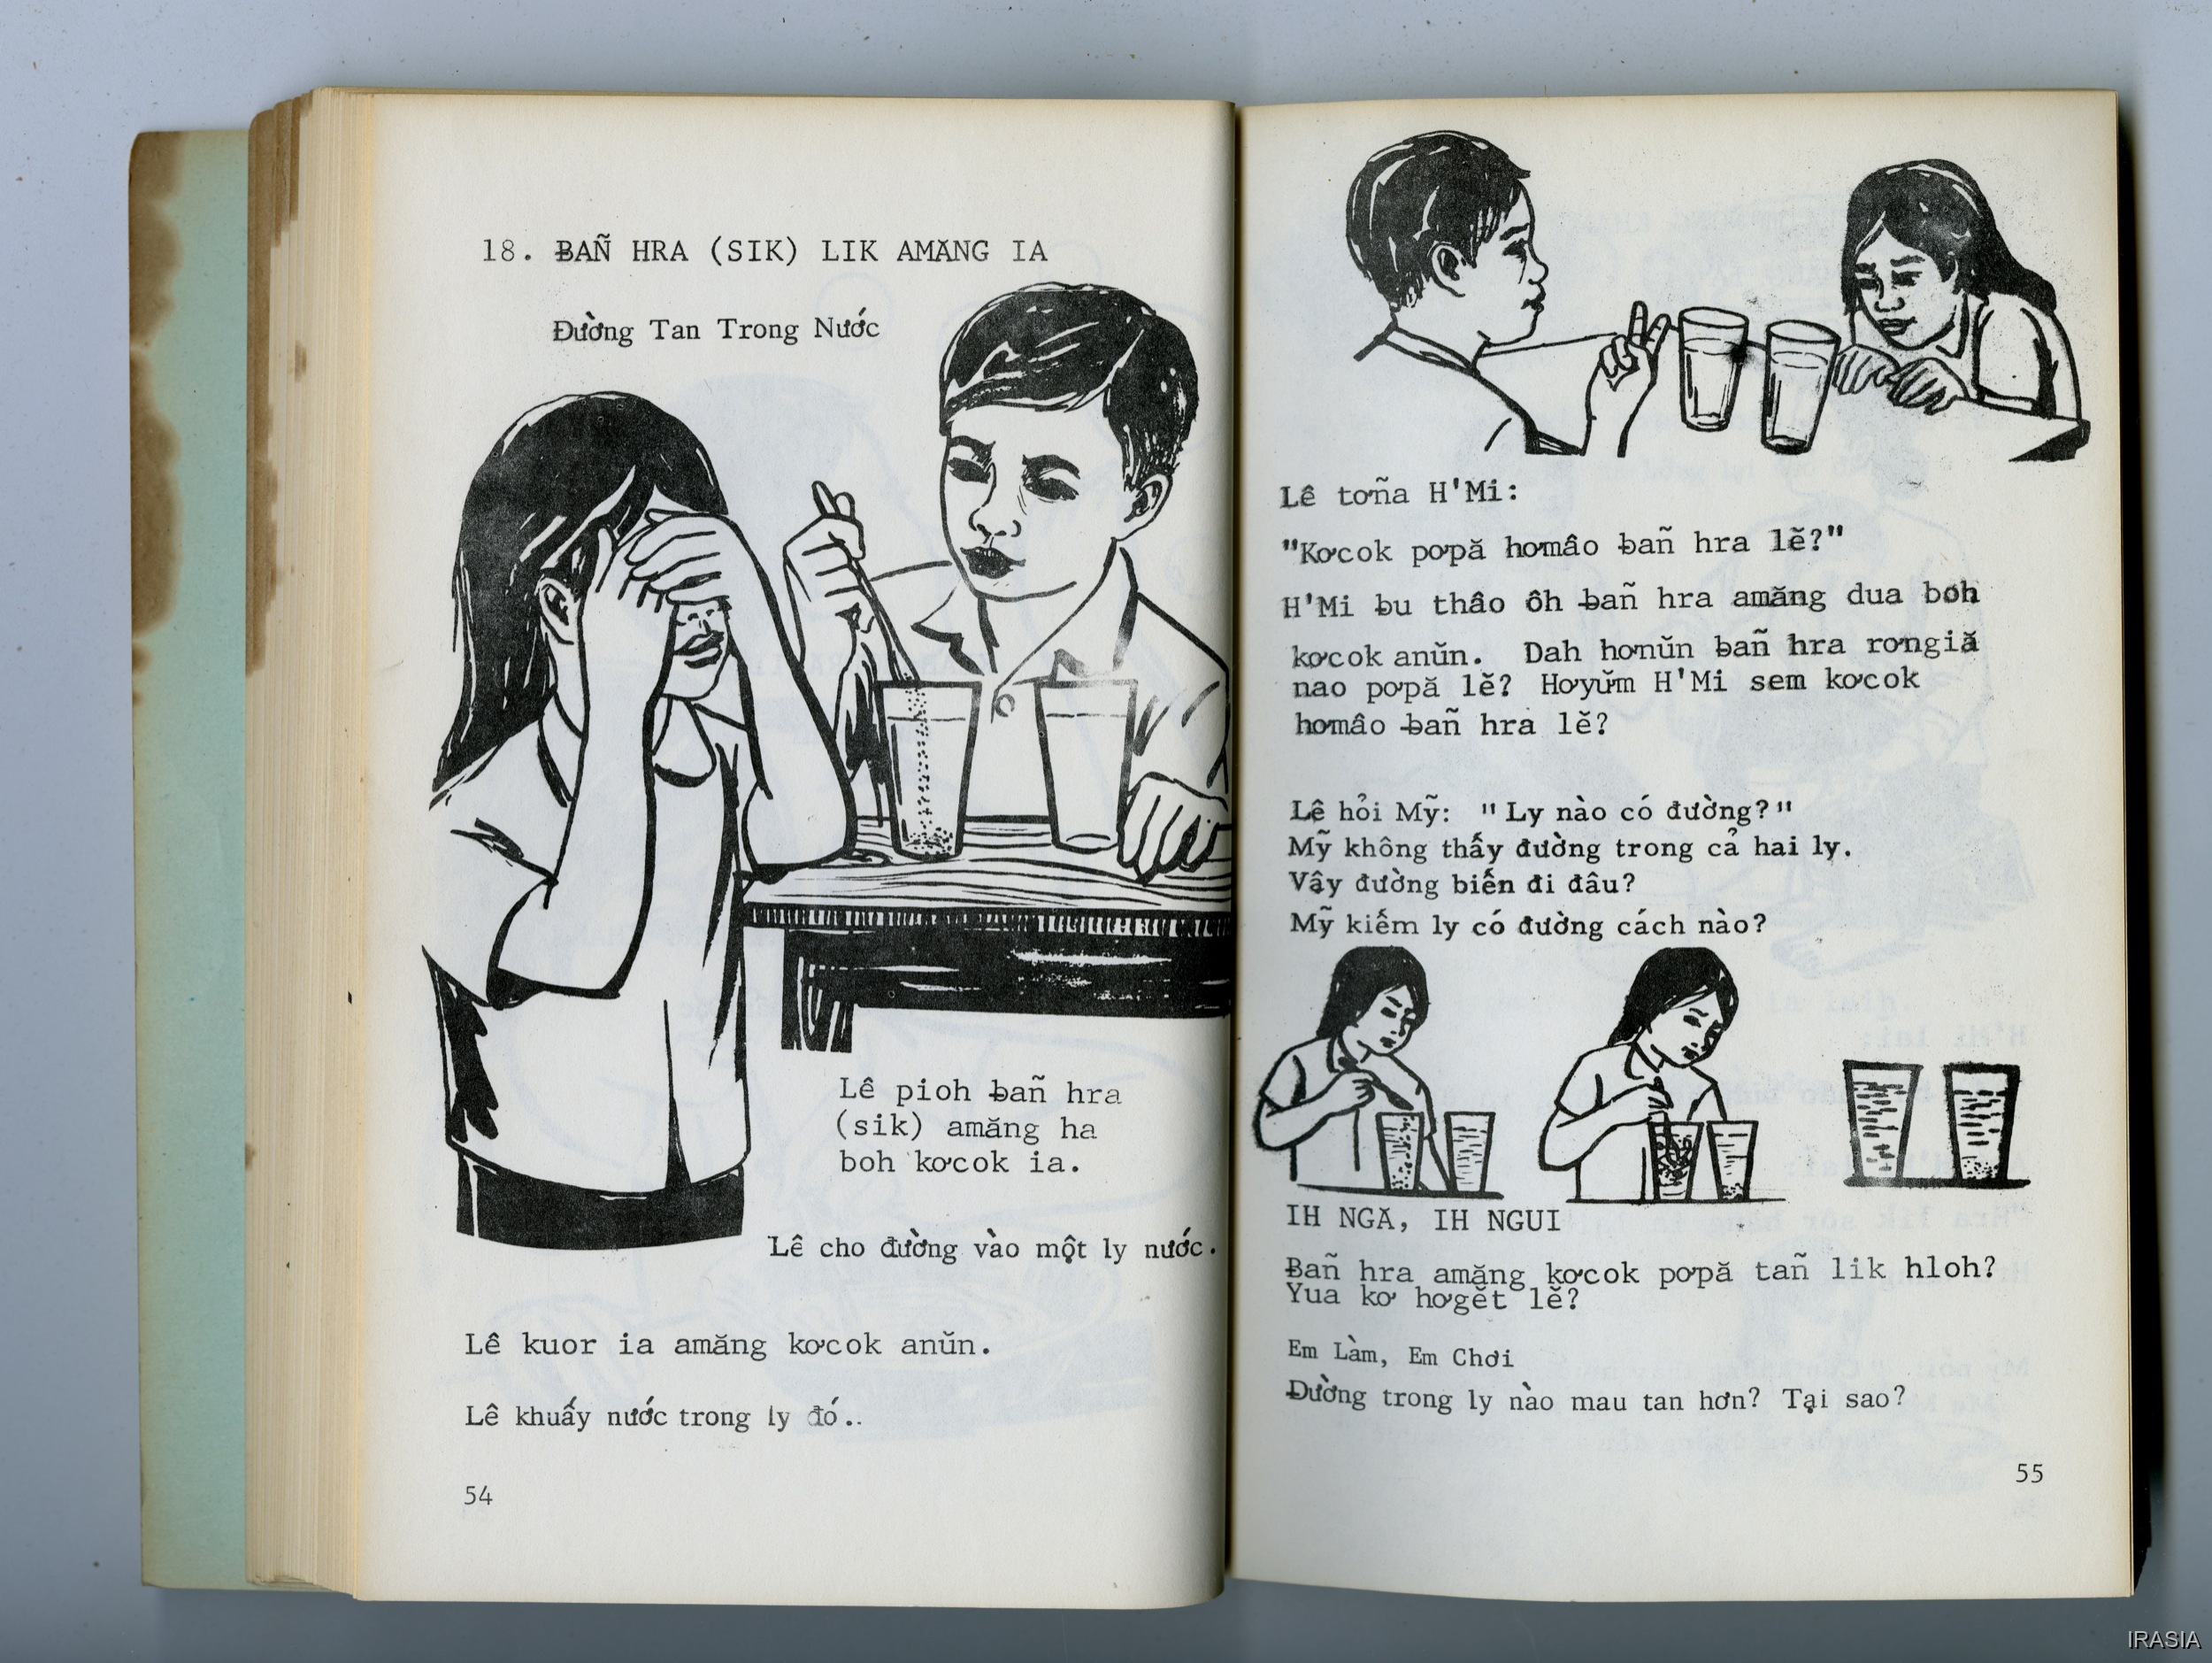 18. ɃAÑ HRA (SIK) LIK AMĂNG IA
Đường Tan Trong Nước
Lê pioh ƀañ hra
(sik) amăng ha
boh kơcok ia.
Lê cho đường vào một ly nước.
Lê kuor ia amăng kơcok anŭn.
Lê khuấy nước trong ly đó..
54
Lê tơña H'Mi:
"Kơcok pơpă hơmâo ƀañ hra lĕ?"
H'Mi ƀu thâo ôh ƀañ hra amăng dua boh
kơcok anŭn. Dah hơnŭn ƀañ hra rơngiă
nao pơpă lĕ? Hơyŭm H'Mi sem kơcok
hơmâo ƀañ hra lĕ?
Lê hỏi Mỹ: "Ly nào có đường?"
Mỹ không thấy đường trong cả hai ly.
Vậy đường biến đi đâu?
Mỹ kiếm ly có đường cách nào?
IH NGĂ, IH NGUI
Ƀañ hra amăng kơcok pơpă tañ lik hloh?
Yua kơ hơgĕt lĕ?
Em Làm, Em Chơi
Đường trong ly nào mau tan hơn? Tại sao?
55
IRASIA